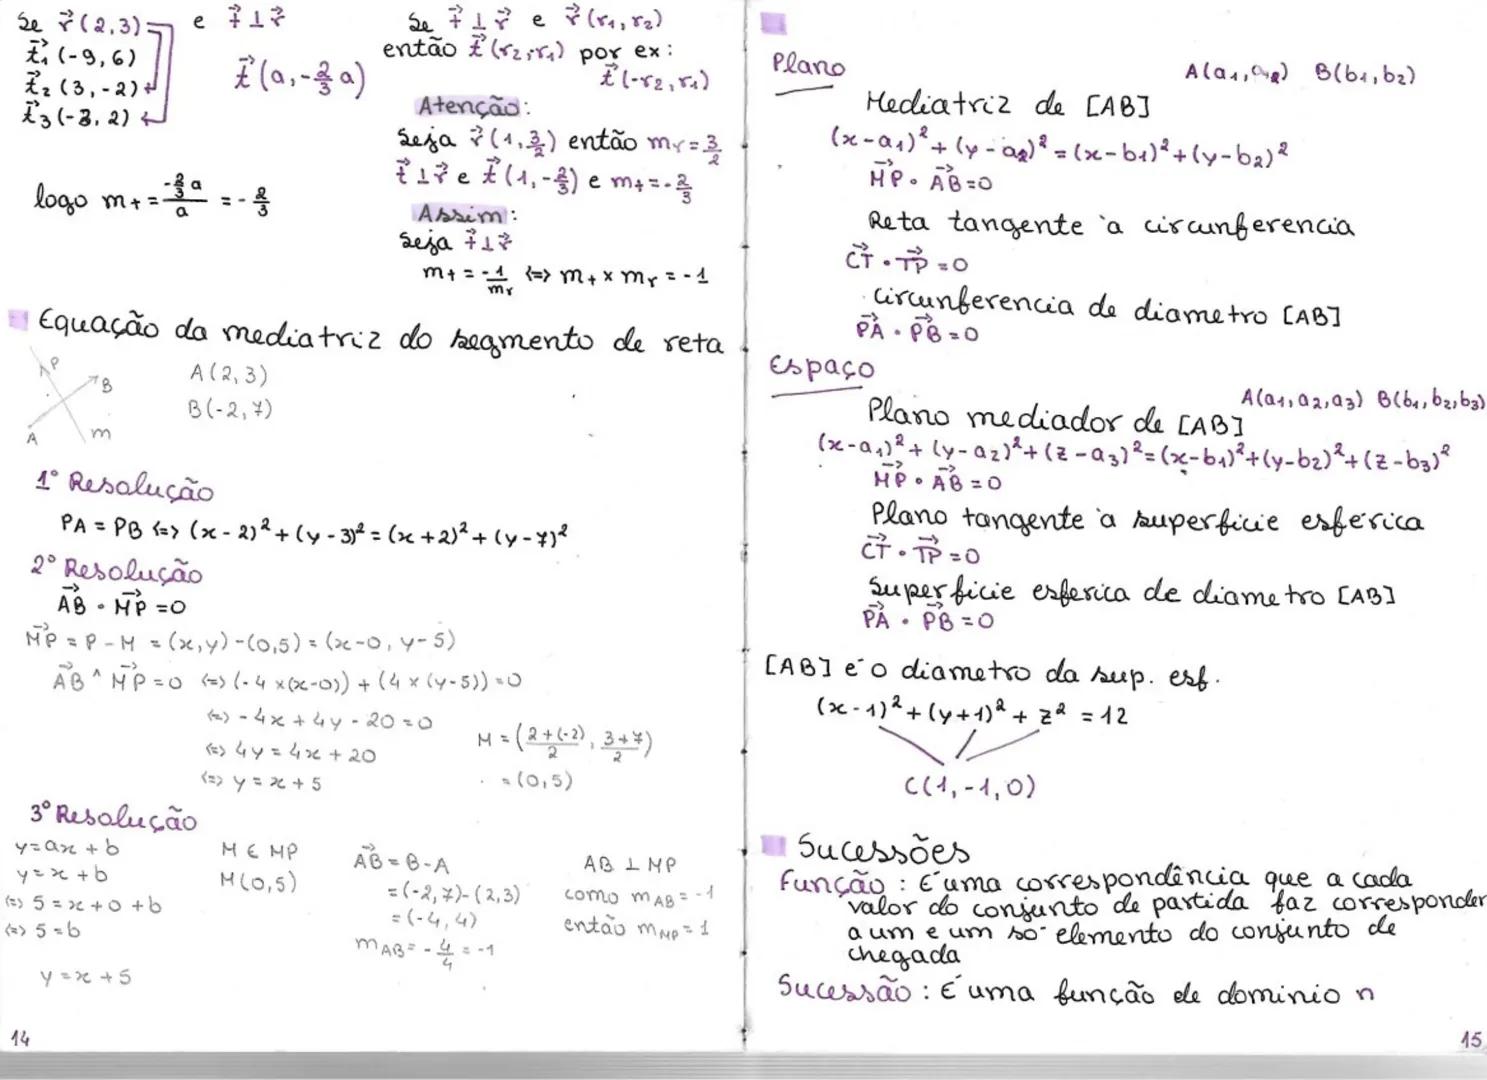 Se r⃗(2,3) e t⃗⊥r⃗
t⃗₁(-9,6)
t⃗₂(3,-2)
t⃗₃(-3,2)
t⃗(a,-2/3 a)
logo mt = (-2/3 a)/a = -2/3
Se t⃗⊥r⃗ e r⃗(r₁,r₂)
então t⃗(r₂,r₁) por ex:
t⃗(-r₂,r₁)
Atenção:
Seja r⃗(1,3/2) então mr=3/2
t⃗⊥r⃗ e t⃗(1,-2/3) e mt=-2/3
Assim:
Seja t⃗⊥r⃗
mt = -1/mr <=> mt × mr = -1
Equação da mediatriz do segmento de reta
P
B
A
m
A(2,3)
B(-2,7)
1º Resolução
PA = PB <=> (x-2)²+(y-3)² = (x+2)²+(y-7)²
2º Resolução
AB⃗ • MP⃗ =0
MP⃗ = P-M = (x,y)-(0,5) = (x-0, y-5)
AB⃗ ^ MP⃗ =0 <=> (-4×(x-0))+(4×(y-5))=0
<=> -4x+4y-20=0
<=> 4y=4x+20
<=> y=x+5
M = ((2+(-2))/2, (3+7)/2)
= (0,5)
3º Resolução
y=ax+b
y=x+b
<=> 5=x+0+b
<=> 5=b
y=x+5
M ∈ MP
M(0,5)
AB⃗ = B-A
=(-2,7)-(2,3)
=(-4,4)
mAB= -4/4 = -1
AB ⊥ MP
como mAB=-1
então mMP=1
14
Plano
A(a₁,a₂) B(b₁,b₂)
Mediatriz de [AB]
(x-a₁)²+(y-a₂)²=(x-b₁)²+(y-b₂)²
MP⃗ • AB⃗=0
Reta tangente à circunferencia
CT⃗ • TP⃗=0
circunferencia de diametro [AB]
PA⃗ • PB⃗=0
Espaço
A(a₁,a₂,a₃) B(b₁,b₂,b₃)
Plano mediador de [AB]
(x-a₁)²+(y-a₂)²+(z-a₃)²=(x-b₁)²+(y-b₂)²+(z-b₃)²
MP⃗ • AB⃗=0
Plano tangente à superficie esférica
CT⃗ • TP⃗=0
Superficie esferica de diametro [AB]
PA⃗ • PB⃗=0
[AB] é o diametro da sup. esf.
(x-1)²+(y+1)²+z²=12
C(1,-1,0)
Sucessões
Função: É uma correspondência que a cada
valor do conjunto de partida faz corresponder
a um e um só elemento do conjunto de
chegada
Sucessão: É uma função de dominio n
15